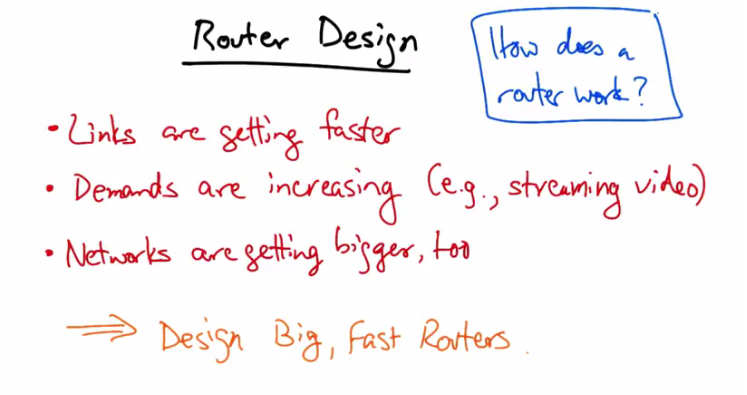 Router Design
How does a
router work?
• Links are getting faster
• Demands are increasing (e.g., streaming video)
• Networks are getting bigger, too
⇒ Design Big, Fast Routers.